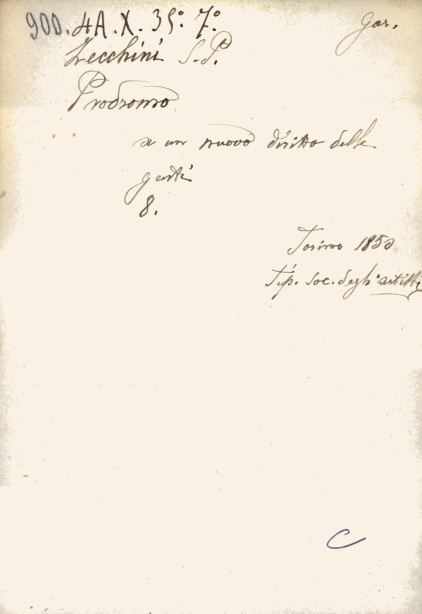 900. 4A. X. 35.° 7.° Gar.
Zecchini S. P.
Prodromo
a un nuovo diritto delle
genti
8.
Torino 1850
Tip. Soc. degli artisti
C